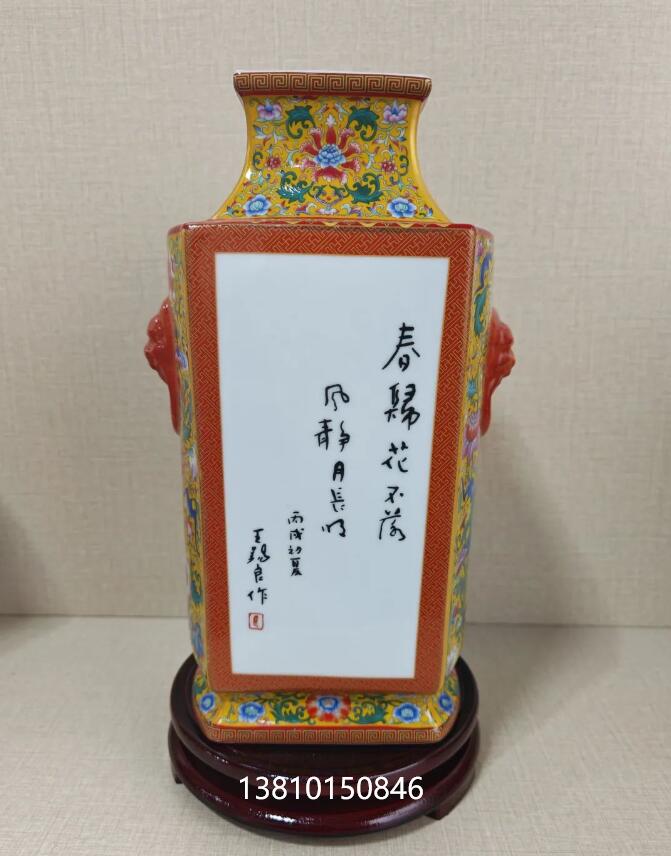 春歸花不落
风静月長明
丙戌初夏
王锡良作
13810150846